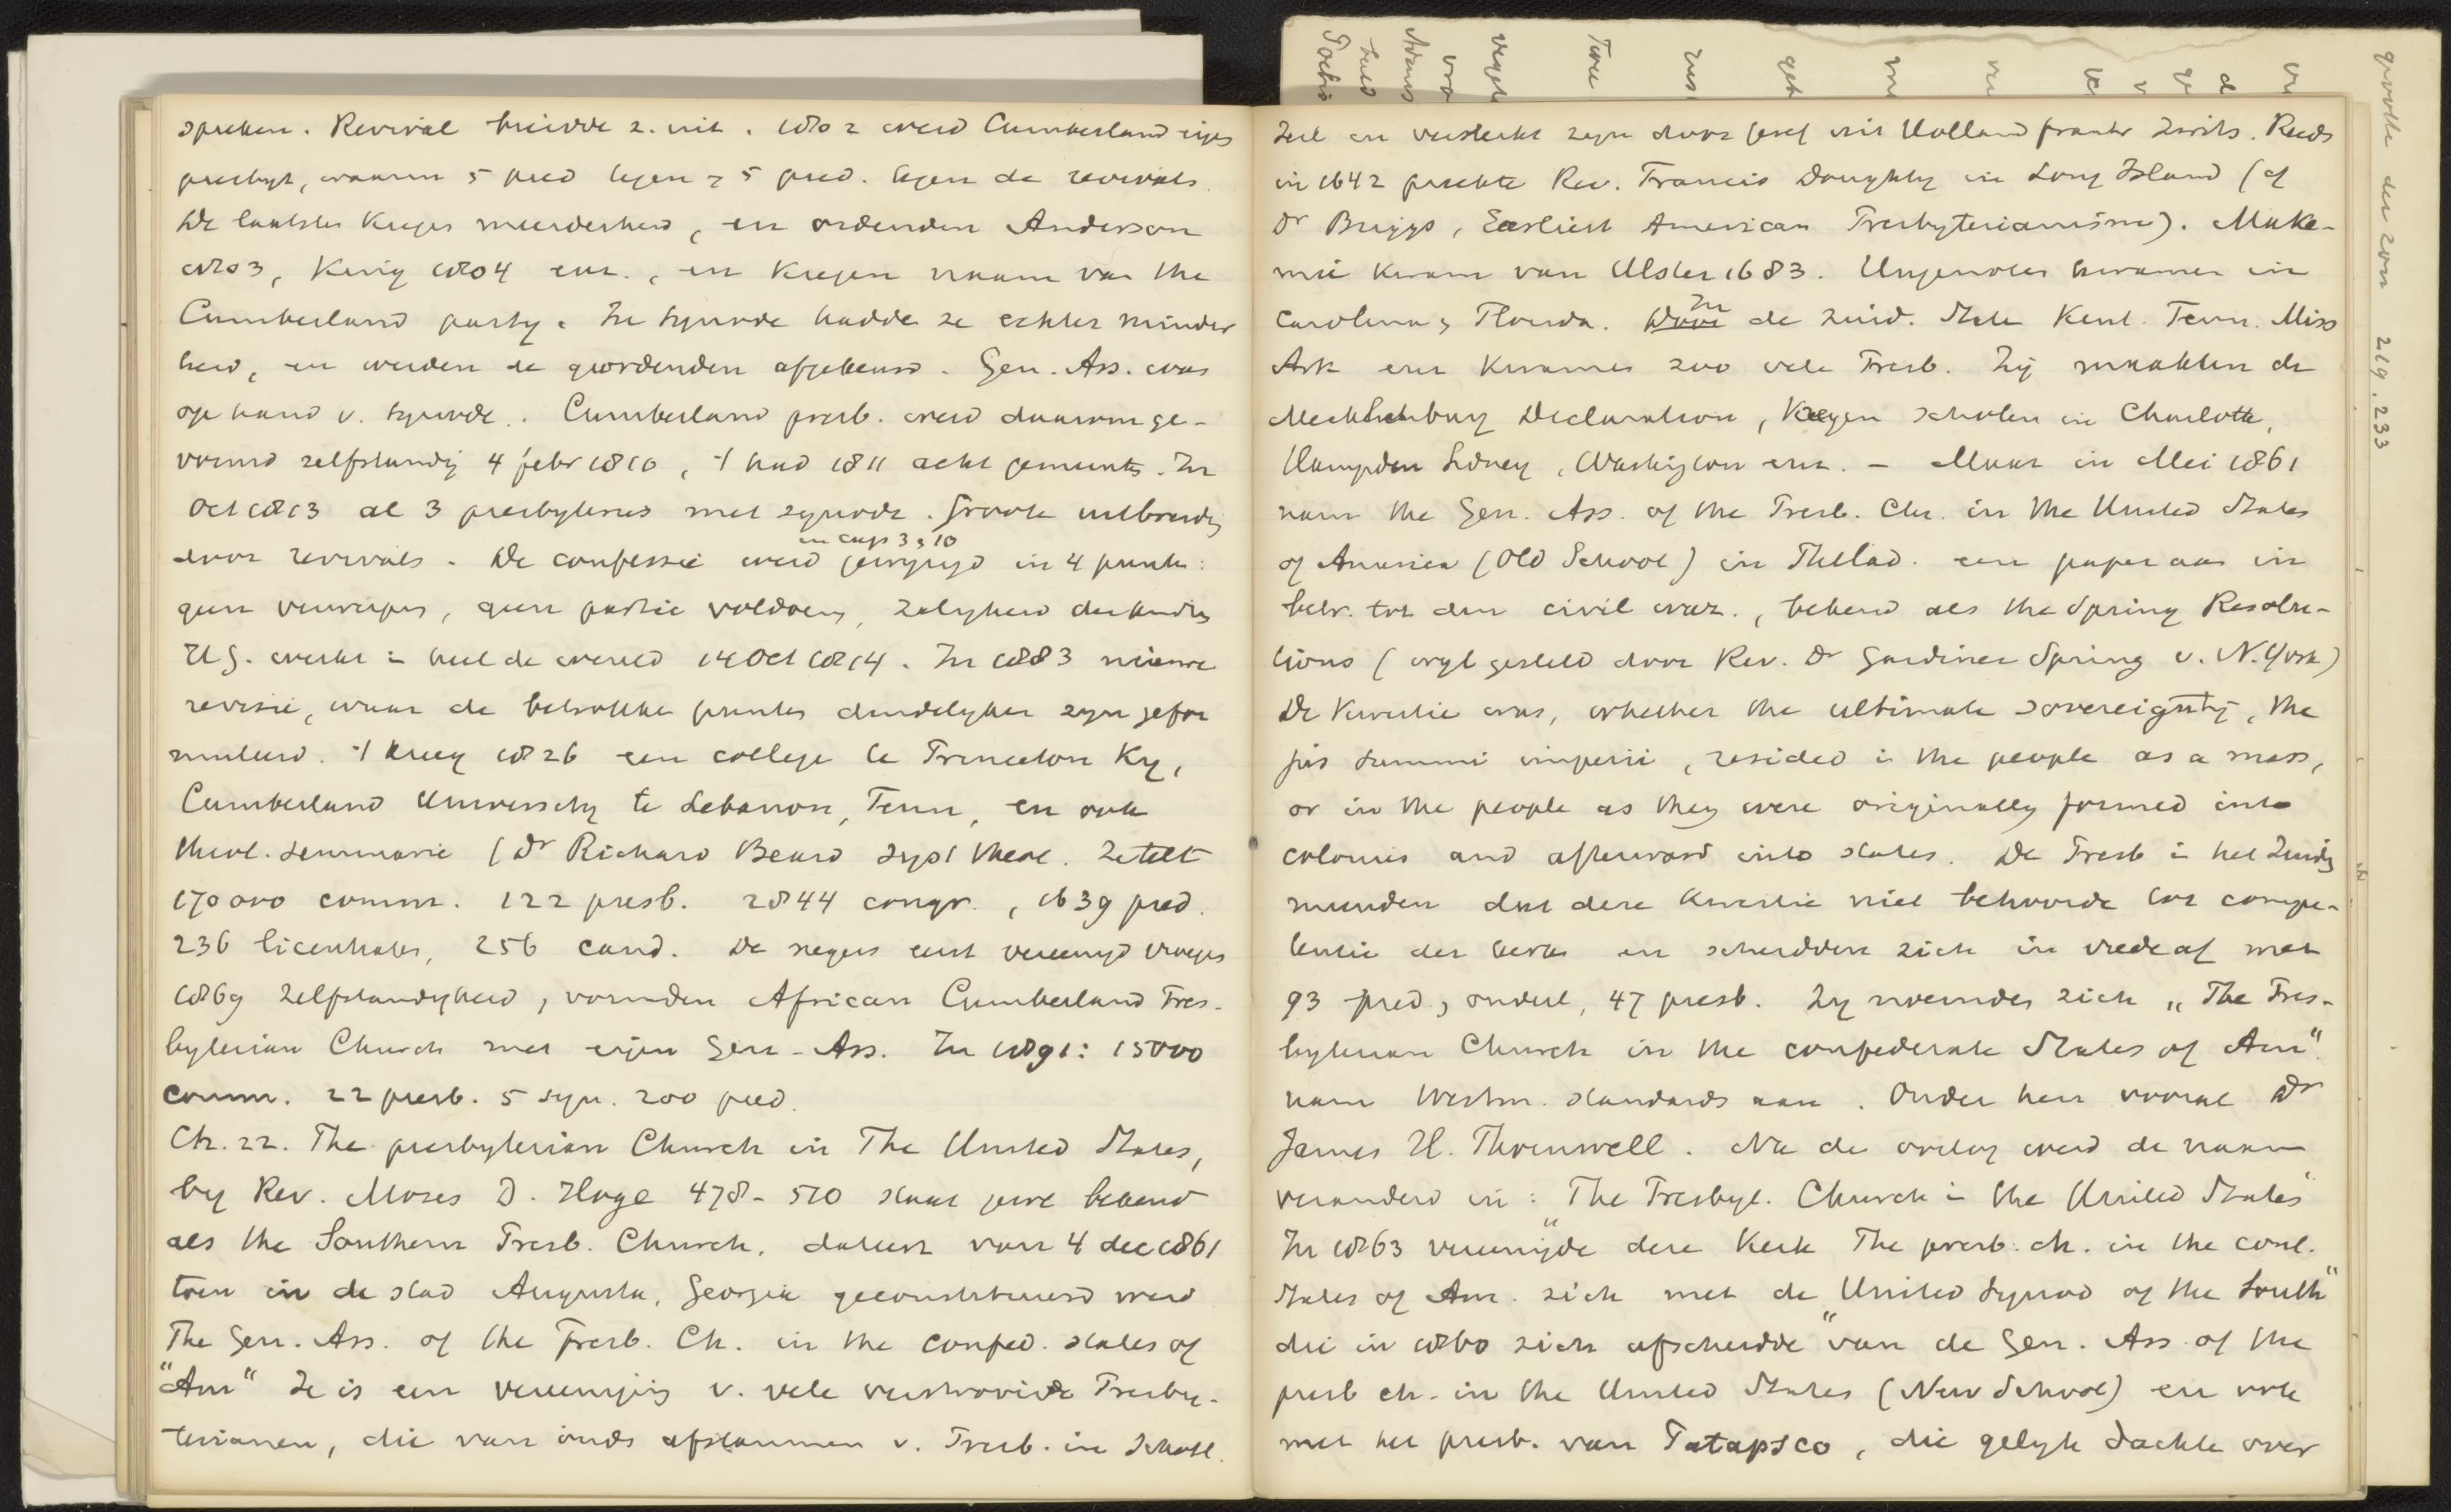 spreken. Revival breidde z. uit. 1802 werd Cumberland eigen
presbyt, waarin 5 pred tegen 5 pred. tegen de revivals.
De laatsten kregen meerderheid, en ordenden Anderson
1803, King 1804 enz., en kregen naam van the
Cumberland party. In synode hadden ze echter minder
heid, en werden de geordenden afgekeurd. Gen. Ass. was
op hand v. synode. Cumberland presb. werd daarom ge-
vormd zelfstandig 4 febr 1810, 't had 1811 acht gemeenten. In
Oct 1813 al 3 presbyteries met synode. Groote uitbreidg
door revivals. De confessie werd in cap 3 , 10 gewijzigd in 4 punten:
geen verwerping, geen partic voldoeng, zaligheid der kindren
H G. werkt in heel de wereld 14 Oct 1814. In 1883 nieuwe
revisie, waar de betrokken punten duidelijker zijn gefor
muleerd. 't kreeg 1826 een college te Princeton Ky,
Cumberland University te Lebanon, Tenn, en ook
theol. seminarie (Dr Richard Beard syst theol. Ze telt
170000 comm. 122 presb. 2844 congr., 1639 pred.
236 licentiates, 256 cand. De negers eerst vereenigd vroegen
1869 zelfstandigheid, vormden African Cumberland Pres-
byterian Church met eigen Gen-Ass. In 1891: 15000
comm. 22 presb. 5 syn. 200 pred.
Ch. 22. The presbyterian Church in The United States,
by Rev. Moses D. Hoge 478-510 staat bekend
als the Southern Presb. Church, dateert van 4 dec 1861
toen in de stad Augusta, Georgia geconstitueerd werd
The Gen. Ass. of the Presb. Ch. in the confed. states of
"Am" Ze is een vereeniging v. vele verstrooide Presby-
terianen, die van ouds afstammen v. Presb. in Schotl.
Ierl en versterkt zijn door Geref uit Holland frankr Zwits. Reeds
in 1642 preekte Rev. Francis Doughty in Long Island (cf
Dr Briggs, Earliest American Presbyterianism). Make-
mie kwam van Ulster 1683. Hugenoten kwamen in
Carolina, Florida. In de zuid. State Kent. Tenn. Miss
Ark enz kwamen zoo vele Presb. Zij maakten de
Mecklenburg Declaration, kregen scholen in Charlotte,
Hampden Sidney, Washington enz. - Maar in Mei 1861
nam the Gen. Ass. of the Presb. Ch. in the United States
of America (Old School) in Philad. een paper aan in
betr. tot den civil war., bekend als the Spring Resolu-
tions (opgesteld door Rev. Dr Gardiner Spring v. N. York)
De kwestie was, whether the ultimate sovereignty, the
jus summi imperii, resided in the people as a mass,
or in the people as they were originally formed into
colonies and afterward into states. De Presb in het Zuiden
meenden dat deze kwestie niet behoorde tot compe-
tentie der kerk en scheidden zich in vrede af met
93 pred, ouderl, 47 presb. Zij noemden zich "The Pres-
byterian Church in the confederate States of Am"
nam Westm. standards aan. Onder hen vooral Dr
James H. Thornwell. Na de oorlog werd de naam
veranderd in: The Presbyt. Church in the United States"
In 1863 vereenigde deze kerk "The presb. ch. in the conf.
States of Am. zich met de United Synod of the South"
die in 1860 zich afscheidde "van de Gen. Ass. of the
presb ch. in the United States (New School) en ook
met het presb. van Patapsco, die gelijk dachten over
groote der zon 219. 233